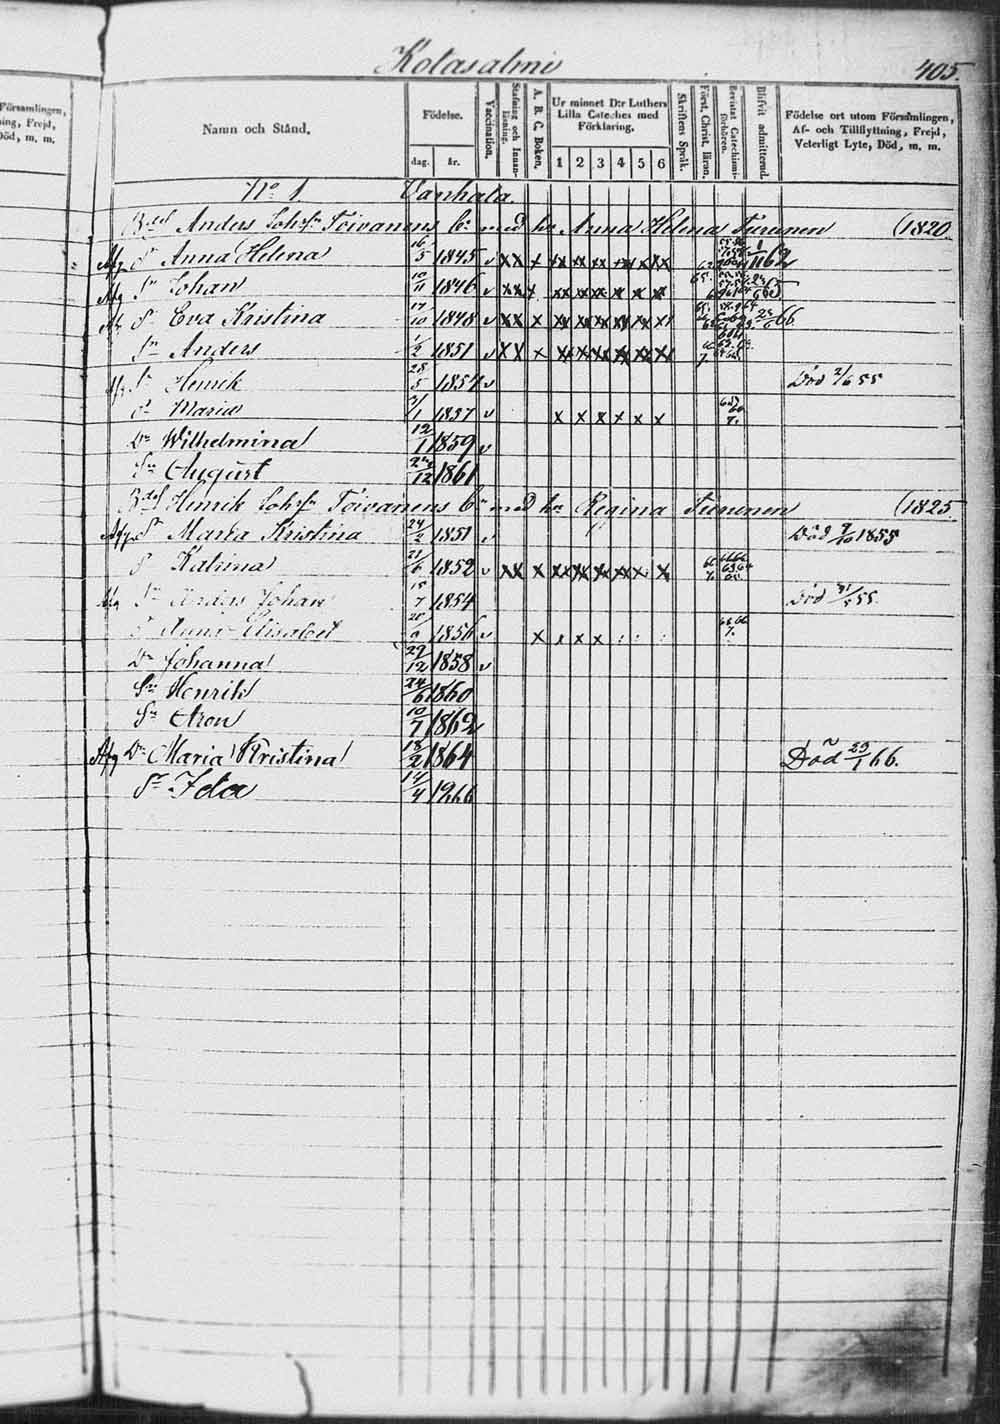 Församlingen,
ning, Frejd,
Död, m. m.
Kotasalmi
405.
Namn och Stånd.
Födelse.
dag.
år.
Vaccination.
Stafning och Innanläsning.
A. B. C. Boken.
Ur minnet D:r Luthers Lilla Cateches med Förklaring.
1 2 3 4 5 6
Skriftens Språk.
Först. Christ. läran.
Bevistat Catechismiförhören.
Blifvit admitterad.
Födelse ort utom Församlingen, Af- och Tillflyttning, Frejd, Veterligt Lyte, Död, m. m.
No 1. Vanhala.
Anders Joh:s Toivanens med Anna Helena Turunen (1820
Afg Anna Helena 16/5 1845 v xx x xx xx xx xx x xx 1/11 62
Afg Sn Johan 10/11 1846 v xx x xx xx xx x x x 65
Eva Kristina 17/10 1848 v xx x xx xx xx xx x x 66
Sn Anders 1/2 1851 v xx x xx xx xx xx xx x
Henrik 28/5 1854 v Död 2/6 55
Maria 2/1 1857 v x x x x x x
Dr Wilhelmina 12/1 1859 v
Sn August 1861
Henrik Joh:s Toivanens med Regina Turunen (1825
Afg Maria Kristina 24/2 1851 v Död 1855
Katrina 21/6 1852 v xx x xx xx xx xx x x
Sn Anders Johan 15/7 1854 Död 55
Anna Elisabet 1856 v x x x x
Dr Johanna 29/12 1858 v
Sn Henrik 24/6 1860
Sn Aron 10/7 1862
Afg Dr Maria Kristina 18/2 1864 Död 23/1 66.
Ida 14/4 1866